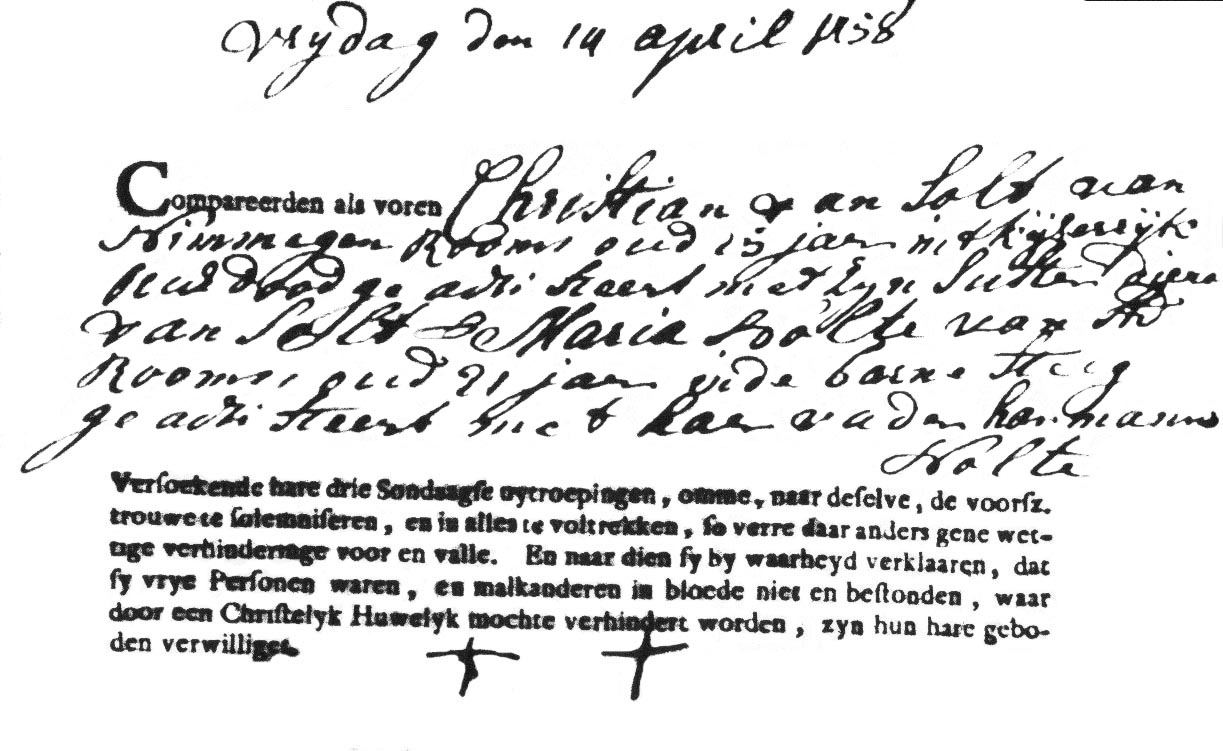 vrydag den 14 april 1758
Compareerden als voren Christian van Solt van
Nimmegen Rooms oud 25 jaer
ouders dood ge adsisteert met zyn Suster
van Solt & Maria Nolte van
Rooms, oud 21 jaer in de barne steeg
ge adsisteert met haer vader harmanus
Nolte
Verſoekende hare drie Sondaagſe uytroepingen, omme, naar deſelve, de voorſz.
trouwe te ſolemniſeren, en in alles te voltrekken, ſo verre daar anders gene wet-
tige verhinderinge voor en valle. En naar dien ſy by waarheyd verklaaren, dat
ſy vrye Perſonen waren, en malkanderen in bloede niet en beſtonden, waar
door een Chriſtelyk Huwelyk mochte verhindert worden, zyn hun hare gebo-
den verwilliget.